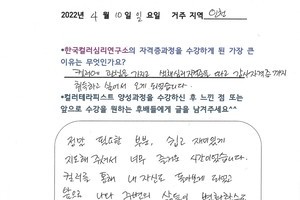 2022년 4 월 10 일 일 요일 거주 지역 인천
•한국컬러심리연구소의 자격증과정을 수강하게 된 가장 큰
이유는 무엇인가요?
컬러에 관심을 가지고 색채심리사 따고 강사자격증 까지
취득하고 싶어서 오게 되었습니다
•컬러테라피스트 양성과정을 수강하신 후 느낀 점 또는
앞으로 수강을 원하는 후배들에게 글을 남겨주세요^^
정말 필요한 부분, 쉽고 재미있게
지도해 주셔서 너무 즐거운 시간이었습니다.
컬러를 통해 내 자신도 돌아보게 되었고
앞으로 나와 주변의 삶도 변화하고